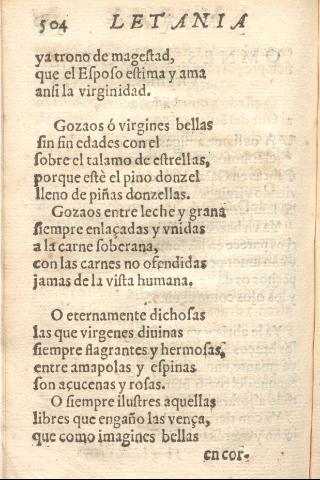 504 LETANIA
ya trono de magestad,
que el Esposo estima y ama
ansi la virginidad.
Gozaos ó virgines bellas
sin fin edades con el
sobre el talamo de estrellas,
porque estè el pino donzel
lleno de piñas donzellas.
Gozaos entre leche y grana
siempre enlaçadas y vnidas
a la carne soberana,
con las carnes no ofendidas
jamas de la vista humana.
O eternamente dichosas
las que virgenes diuinas
siempre flagrantes y hermosas,
entre amapolas y espinas
son açucenas y rosas.
O siempre ilustres aquellas
libres que engaño las vença,
que como imagines bellas
en cor-